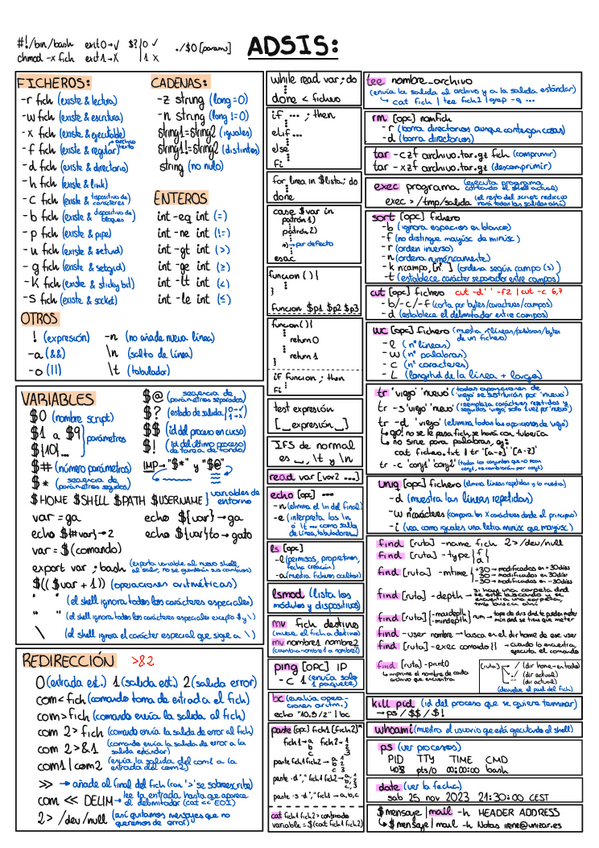 #!/bin/bash exit 0 → √ $? 0 √
chmod -x fich exit 1 → X 1 X
./$0 [params]
ADSIS:
FICHEROS:
-r fich (existe & lectura)
-w fich (existe & escritura)
-x fich (existe & ejecutable)
-f fich (existe & regular)
-d fich (existe & directorio)
-h fich (existe & link)
-c fich (existe & dispositivo de caracteres)
-b fich (existe & dispositivo de bloques)
-p fich (existe & pipe)
-u fich (existe & setuid)
-g fich (existe & setgid)
-k fich (existe & sticky bit)
-S fich (existe & socket)
CADENAS:
-z string (long = 0)
-n string (long != 0)
string1=string2 (iguales)
string1!=string2 (distintos)
string (no nulo)
ENTEROS
int -eq int (=)
int -ne int (!=)
int -gt int (>)
int -ge int (≥)
int -lt int (<)
int -le int (≤)
OTROS
! (expresión)
-a (&&)
-o (||)
-n (no añade nueva línea)
\n (salto de línea)
\t (tabulador)
VARIABLES
$0 (nombre script)
$1 a $9
${10}...
parámetros
$# (número parámetros)
$* (secuencia de parámetros seguidos)
$@ (secuencia de parámetros separados)
$? (estado de salida
$$ (id del proceso en curso)
$! (id del último proceso de tarea de fondo)
IMP → "$*" y "$@"
$HOME $SHELL $PATH $USERNAME } variables de entorno
var = ga
echo ${var} → ga
echo $#var} → 2
echo ${var}to → gato
var = $(comando)
export var ; bash (exporta variable al nuevo shell,
$(($var + 1)) (operaciones aritméticas)
' ' (el shell ignora todos los caracteres especiales)
" " (el shell ignora todos los caracteres especiales excepto $ y \)
\ (el shell ignora el carácter especial que sigue a \)
REDIRECCIÓN >&2
0 (entrada est.) 1 (salida est.) 2 (salida error)
com < fich (comando toma de entrada el fich)
com > fich (comando envía la salida al fich)
com 2> fich (comando envía la salida de error al fich)
com 2>&1 (comando envía la salida de error a la salida estándar)
com1 | com2 (envía la salida del com1 a la entrada del com2)
>> → añade al final del fich (con '>' se sobrescribe)
com << DELIM → lee la entrada hasta que aparece el delimitador (cat << EOI)
2> /dev/null (así quitamos mensajes que no queremos de error)
while read var ; do
⋮
done < fichero
if ... ; then
⋮
elif...
⋮
else
⋮
fi
for linea in $lista ; do
done
case $var in
patrón 1)
patrón 2)
*) → por defecto
esac
funcion () {
⋮
}
funcion $p1 $p2 $p3
funcion () {
⋮
return 0
⋮
return 1
}
if funcion ; then
fi
test expresión
[_expresión_]
IFS de normal
es _, \t y \n
read var [var2 ...]
echo [op] ---
-n (elimina el \n del final)
-e (interpreta los \n o \t ... como salto de línea, tabuladores)
ls [opc]
-l (permisos, propietario, fecha creación)
-a (muestra ficheros ocultos)
lsmod (lista los módulos y dispositivos)
mv fich destino
(mueve el fich a destino)
mv nombre1 nombre2
(cambia nombre1 a nombre2)
ping [opc] IP
-c 1 (envía solo 1 paquete)
bc (evalúa operaciones aritm.)
echo "10.5/2" | bc
paste [opc] fich1 [fich2]*
cat fich1 fich2 > contraido
variable = $(cat fich1 fich2)
tee nombre_archivo
(envía la salida al archivo y a la salida estándar)
↳ cat fich | tee fich2 | grep -q ...
rm [opc] nomfich
-r (borra directorios aunque contengan cosas)
-d (borra directorios)
tar -czf archivo.tar.gz fich (comprimir)
tar -xzf archivo.tar.gz (descomprimir)
exec programa (ejecuta programa
exec > /tmp/salida (el resto del script redirecciona todas las salidas ahí)
sort [opc] fichero
-b (ignora espacios en blanco)
-f (no distingue mayúsc de minúsc)
-r (orden inverso)
-n (ordena numéricamente)
-k ncampo,[n'...] (ordena según campo(s))
-t (establece carácter separador entre campos)
cut [opc] fichero cut -d' ' -f2 | cut -c 6,7
-b/-c/-f (corta por bytes/caracteres/campos)
-d (establece el delimitador entre campos)
wc [opc] fichero (muestra nº líneas/palabras/bytes de un fichero)
-l (nº líneas)
-w (nº palabras)
-c (nº caracteres)
-L (longitud de la línea + larga)
tr 'viejo' 'nuevo' (todas apariciones de 'viejo' se sustituirán por 'nuevo')
tr -s 'viejo' 'nuevo'
tr -d 'viejo' (elimina todas las apariciones de viejo)
cat fichero.txt | tr '[a-z]' '[A-Z]'
tr -c 'conj1' 'conj2'
uniq [opc] fichero (elimina líneas repetidas
-d (muestra las líneas repetidas)
-w ncaracteres (compara los X caracteres desde el principio)
-i (vea como iguales una letra minúsc que mayúsc)
find [ruta] -name fich 2>/dev/null
find [ruta] -type f l d
find [ruta] -mtime +30 → modificados en +30 días
-30 → modificados en -30 días
30 → modificados en 30 días
find [ruta] -depth →
find [ruta] -maxdepth num
-mindepth num
find -user nombre → busca en el dir home de ese user
find [ruta] -exec comando \\ → cuando lo encuentra, ejecuta el comando
find [ruta] -print0
↳ imprime el nombre de cada archivo que encuentra
[ruta] → / (dir home-entrada)
~ (dir actual)
kill pid (id del proceso que se quiere terminar)
↳ ps / $$ / $!
whoami (muestra el usuario que está ejecutando el shell)
ps (ver procesos)
PID TTY TIME CMD
408 pts/0 00:00:00 bash
date (ver la fecha)
sab 25 nov 2023 21:30:00 CEST
$mensaje | mail -h HEADER ADDRESS
↳ $mensaje | mail -h Notas irene@unizar.es